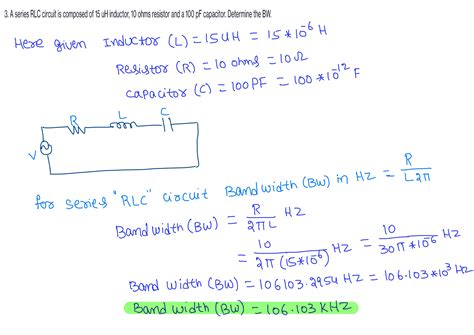 3. A series RLC circuit is composed of 15 uH inductor, 10 ohms resistor and a 100 pF capacitor. Determine the BW.
Here given Inductor (L) = 15 UH = 15 * 10^-6 H
Resistor (R) = 10 ohms = 10 Ω
capacitor (C) = 100 PF = 100 * 10^-12 F
R L C
V
for series "RLC" circuit Bandwidth (BW) in HZ = R / L2π
Bandwidth (BW) = R / 2πL HZ
= 10 / 2π (15*10^-6) HZ = 10 / 30π*10^-6 HZ
Band width (BW) = 106103.2954 HZ = 106.103*10^3 HZ
Band width (BW) = 106.103 KHZ